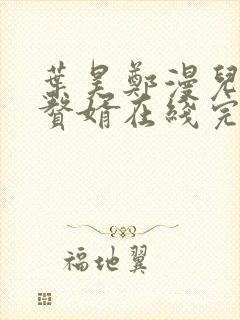 葉昊鄭漫兒
贅婿在綫完
福地翼